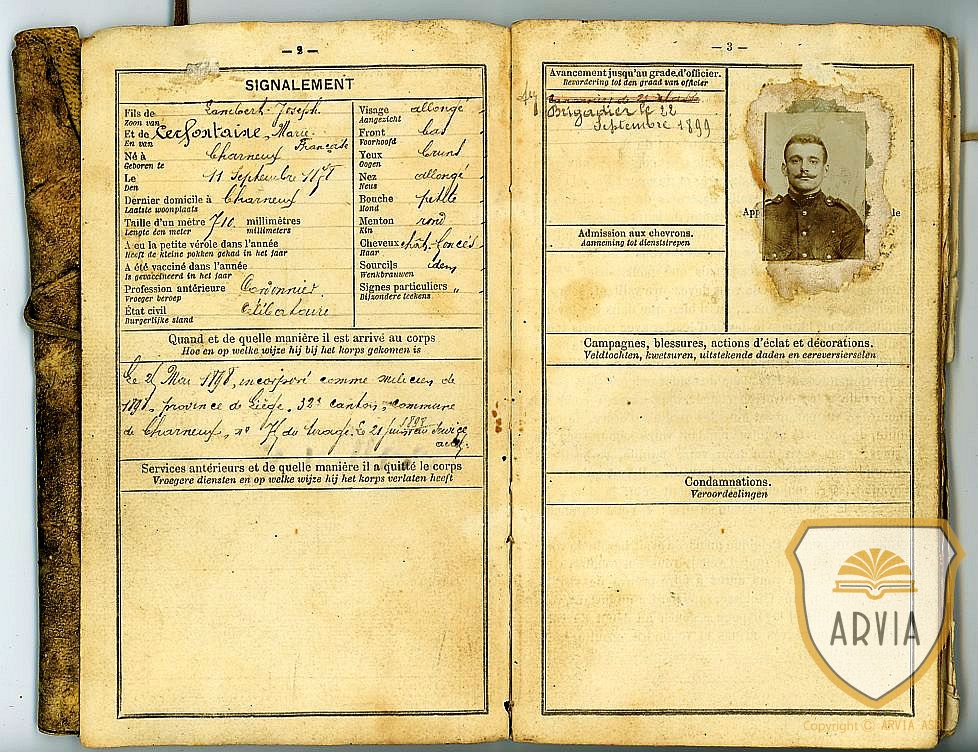 — 2 —
SIGNALEMENT
Fils de Lambert Joseph
Zoon van
Et de Lecfontaine, Marie-
En van Française
Né à Charneux
Geboren te
Le 11 Septembre 1878
Den
Dernier domicile à Charneux
Laatste woonplaats
Taille d'un mètre 710 millimètres
Lengte een meter millimeters
A eu la petite vérole dans l'année
Heeft de kleine pokken gehad in het jaar
A été vacciné dans l'année
Is gevaccineerd in het jaar
Profession antérieure Cordonnier
Vroeger beroep
État civil Célibataire
Burgerlijke stand
Visage allongé
Aangezicht
Front bas
Voorhoofd
Yeux bruns
Oogen
Nez allongé
Neus
Bouche petite
Mond
Menton rond
Kin
Cheveux chât. foncés
Haar
Sourcils idem
Wenkbrauwen
Signes particuliers "
Bijzondere teekens
Quand et de quelle manière il est arrivé au corps
Hoe en op welke wijze hij bij het korps gekomen is
Mai 1898, incorporé comme milicien de
1898, province de Liège, 32e canton, commune
de Charneux, n° 7 du tirage. Le 21 juin 1898 au service
actif.
Services antérieurs et de quelle manière il a quitté le corps
Vroegere diensten en op welke wijze hij het korps verlaten heeft
— 3 —
Avancement jusqu'au grade d'officier.
Bevordering tot den graad van officier
Brigadier le 22
Septembre 1899
Admission aux chevrons.
Aanneming tot dienststrepen
App
le
Campagnes, blessures, actions d'éclat et décorations.
Veldtochten, kwetsuren, uitstekende daden en eereversierselen
Condamnations.
Veroordeelingen
ARVIA
Copyright © ARVIA AS